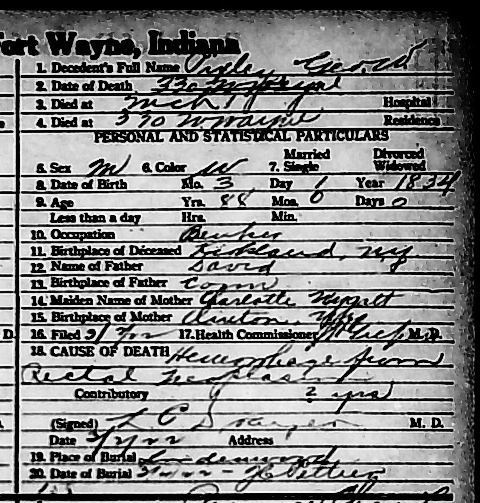 Fort Wayne, Indiana
1. Decedent's Full Name Geo. W
2. Date of Death 330 W Wayne
3. Died at Mch 1 Hospital
4. Died at 330 W Wayne Residence
PERSONAL AND STATISTICAL PARTICULARS
Married Divorced
5. Sex M 6. Color W 7. Single Widowed
8. Date of Birth Mo. 3 Day 1 Year 1834
9. Age Yrs. 88 Mos. 0 Days 0
Less than a day Hrs. Min.
10. Occupation Banker
11. Birthplace of Deceased Kirkland, N.Y.
12. Name of Father David
13. Birthplace of Father Conn
14. Maiden Name of Mother Charlotte
15. Birthplace of Mother Clinton
D. 16. Filed 17. Health Commissioner M. D.
18. CAUSE OF DEATH Hemorrhage from
Rectal Neoplasm
Contributory 2 yrs
(Signed) L. P. M. D.
Date Address
19. Place of Burial Lindenwood
20. Date of Burial